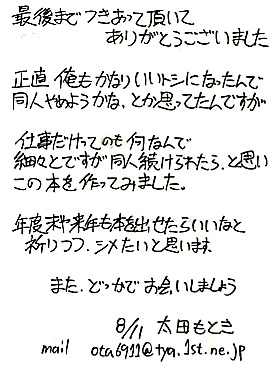 最後までつきあって頂いて
ありがとうございました
正直 俺もかなりいいトシになったんで
同人やめようかな、とか思ってたんですが
仕事だけってのも何なんで
細々とですが同人続けられたら、と思い
この本を作ってみました。
年度末や来年も本を出せたらいいなと
祈りつつ、シメたいと思います
また、どっかでお会いしましょう
8/11 太田もとき
mail ota6911@tya.1st.ne.jp